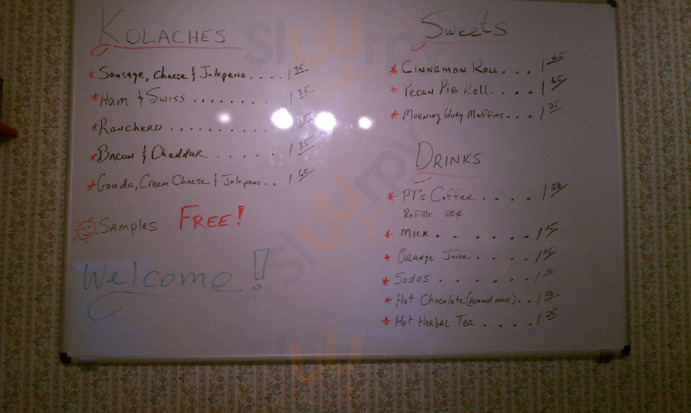 KOLACHES
* Sausage, Cheese & Jalepeno .... 1 35
* Ham & Swiss ....... 1 35
* Ranchero
* Bacon & Cheddar ..... 1 35
* Gouda, Cream Cheese & Jalapeno .. 1 60
SAMPLES FREE!
Welcome!
Sweets
* Cinnamon Roll ... 1 45
* Pecan Pie Roll .... 1 65
* Morning Glory Muffins ... 1 25
DRINKS
* PT's Coffee .... 1 50
Refills 50¢
* Milk - . . . . . 1
* Orange Juice .... 1
* Sodas ...... 1
* Hot Chocolate ( .. 1 50
* Hot Herbal Tea .... 1 25
Slurrpy